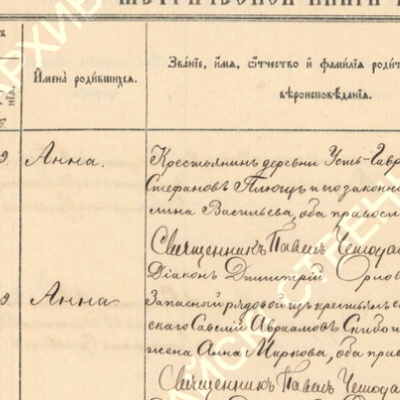 МЕТРИЧЕСКОЙ КНИГИ
Имена родившихся.
Званіе, имя, отчество и фамилія родит
вѣроисповѣданія.
Анна.
Крестьянинъ деревни Усть-Гавр
Стефановъ Плющъ и его законна
лина Васильева, оба правосл
Священникъ Павелъ Чешуда
Діаконъ Димитрій Орлов
Анна
Запасной рядовой изъ крестьянъ се
скаго Савелій Авраамовъ Скибо
жена Анна Маркова, оба прав
Священникъ Павелъ Чешуда